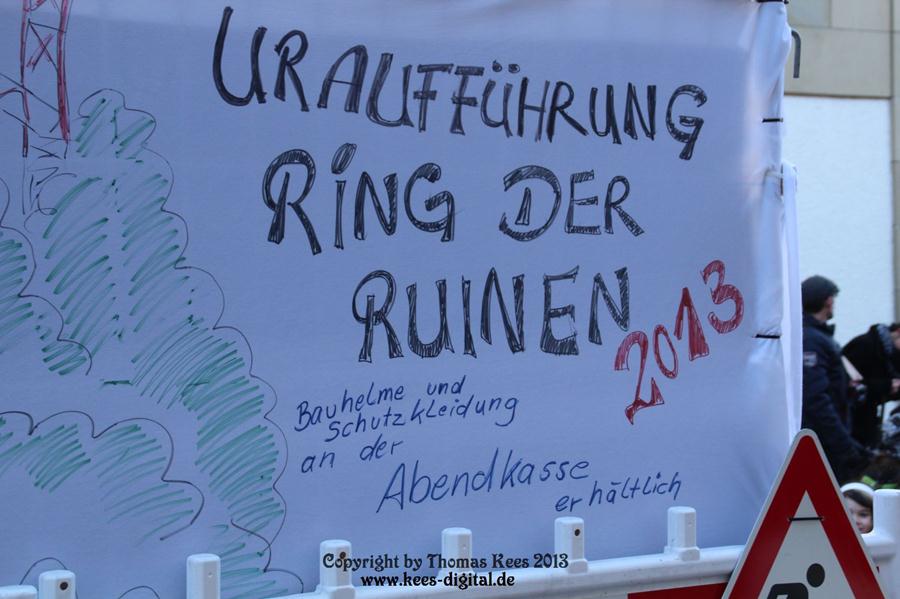 URAUFFÜHRUNG
RiNG DER
RUINEN
2013
Bauhelme und
Schutzkleidung
an der
Abendkasse
erhältlich
Copyright by Thomas Kees 2013
www.kees-digital.de